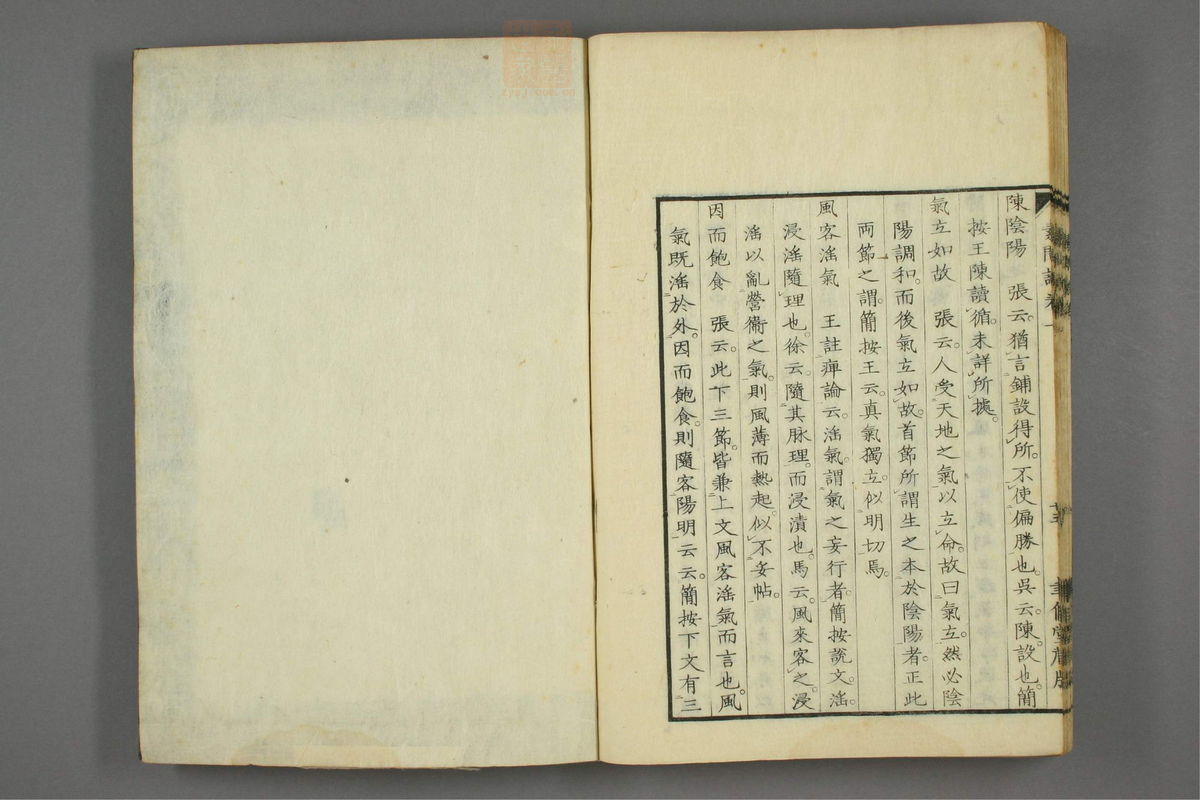 陳陰陽 張云。猶言鋪設得所。不使偏勝也。吳云。陳。設也。簡
按王陳讀循。未詳所據。
氣立如故 張云。人受天地之氣以立命。故曰氣立。然必陰
陽調和。而後氣立如故。首節所謂生之本於陰陽者。正此
兩節之謂。簡按王云。真氣獨立。似明切焉。
風客淫氣 王註痺論云。淫氣。謂氣之妄行者。簡按說文。淫。
浸淫隨理也。徐云。隨其脉理。而浸漬也。馬云。風來客之。浸
淫以亂營衞之氣。則風薄而熱起。似不妥帖。
因而飽食 張云。此下三節。皆兼上文風客淫氣而言也。風
氣既淫於外。因而飽食。則隨客陽明云云。簡按下文有三